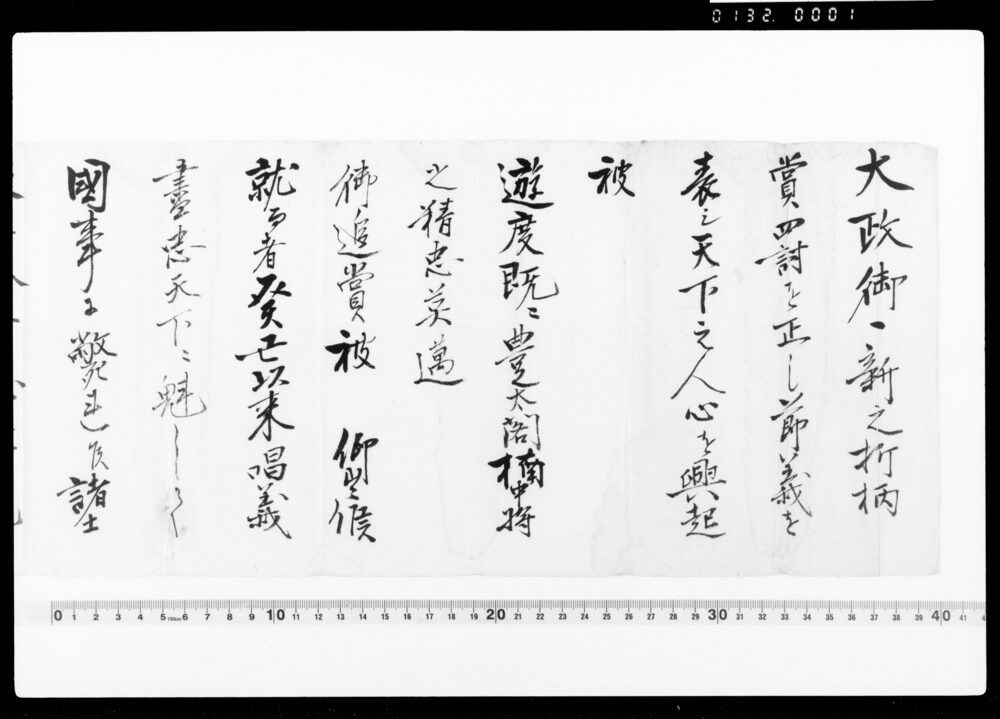 0132. 0001
大政御一新之折柄
賞罸を正し節義を
表シ天下之人心を興起
被
遊度既ニ豊太閤楠中将
之精忠英邁
御追賞被 仰出候
就而者癸丑以来唱義
盡忠天下ニ魁して
國事に斃連候諸士
0 1 2 3 4 5 150cm 6 7 8 9 10 11 12 13 14 15 16 17 18 19 20 21 22 23 24 25 26 27 28 29 30 31 32 33 34 35 36 37 38 39 40 41